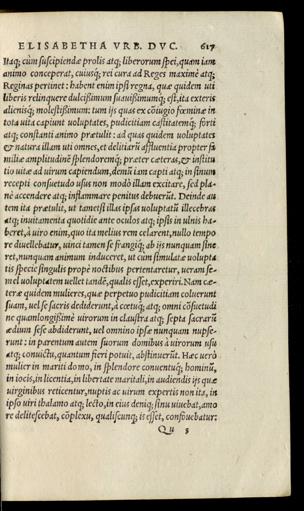 ELISABETHA VRB. DVC. 617
Itaq; cùm suscipiendæ prolis atq; liberorum spei, quam iam
animo conceperat, cuiusq; rei cura ad Reges maximè atq;
Reginas pertinet: habent enim ipsi regna, quæ quidem uti
liberis relinquere dulcissimum suauissimumq; est, ita exteris
alienisq; molestissimum: tum ijs quæ ex coniugio fœminæ in
tota uita capiunt uoluptates, pudicitiam castitatemq; forti
atq; constanti animo prætulit: ad quas quidem uoluptates
& natura illam uti omnes, et delitiarũ affluentia propter fa
miliæ amplitudinẽ splendoremq; præter cæteras, & institu
tio uitæ ad uirum capiendum, demũ iam capti atq; in sinum
recepti consuetudo usus non modò illam excitare, sed pla-
nè accendere atq; inflammare penitus debuerũt. Deinde au
tem ita prætulit, ut tametsi illas ipsas uoluptatũ illecebras
atq; inuitamenta quotidie ante oculos atq; ipsis in ulnis ha-
beret, à uiro enim, quo ita melius rem celarent, nullo tempo
re diuellebatur, uinci tamen se frangiq; ab ijs nunquam sine
ret, nunquam animum induceret, ut cum simulatæ uolupta
tis specie singulis propè noctibus pertentaretur, ueram se-
mel uoluptatem uellet tandẽ, qualis esset, experiri. Nam cæ-
teræ quidem mulieres, quæ perpetuo pudicitiam coluerunt
suam, uel se sacris dediderunt, à cœtuq; atq; omni cõsuetudi
ne quamlongissimè uirorum in claustra atq; septa sacrarũ
ædium sese abdiderunt, uel omnino ipsæ nunquam nupse-
runt: in parentum autem suorum domibus à uirorum usu
atq; conuictu, quantum fieri potuit, abstinuerũt. Hæc uerò
mulier in mariti domo, in splendore conuentuq; hominũ,
in iocis, in licentia, in libertate maritali, in audiendis ijs quæ
uirginibus reticentur, nuptis ac uirum expertis non ita, in
ipso uiri thalamo atq; lecto, in eius deniq; sinu uiuebat, amo
re delitescebat, cõplexu, qualiscunq; is esset, confouebatur:
Qu 3